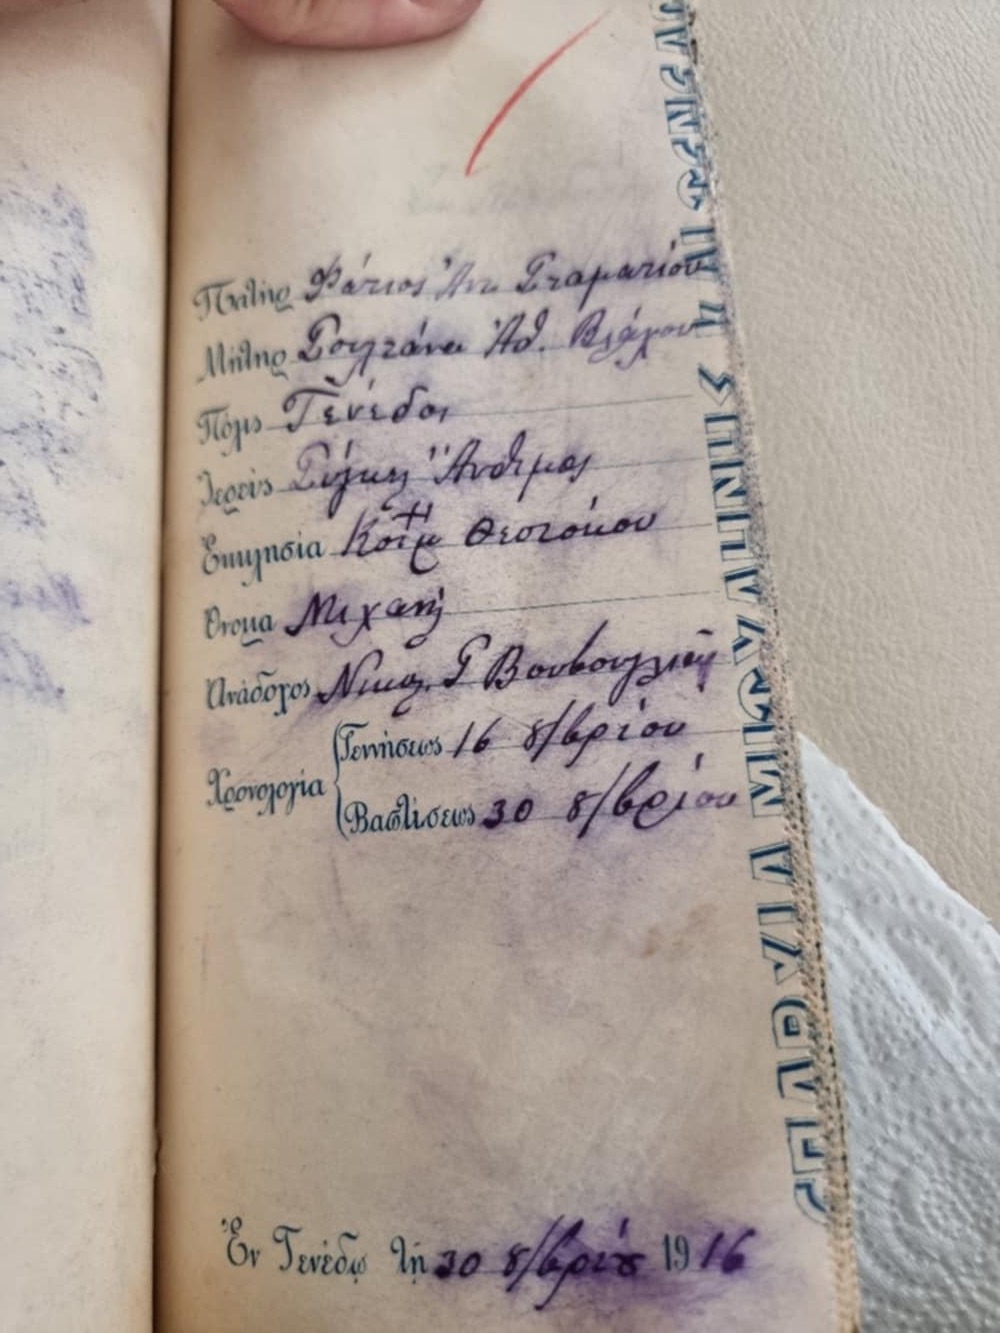 Πατὴρ Φώτιος Ἀντ. Σταματίου
Μήτηρ Σουλτάνα Ἀθ. Βλάχου
Πόλις Τένεδος
Ἱερεὺς Σύγκελ Ἄνθιμος
Ἐκκλησία Κοίμ Θεοτόκου
Ὄνομα Μιχαὴλ
Ἀνάδοχος Νικολ. Γ
Χρονολογία
Γεννήσεως 16 8/βρίου
Βαπτίσεως 30 8/βρίου
Ἐν Τενέδῳ τῇ 30 8/βρίου 1916
ΕΠΑΡΧΙΑ